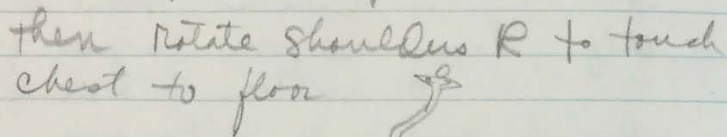 then rotate shoulders R to touch
chest to floor